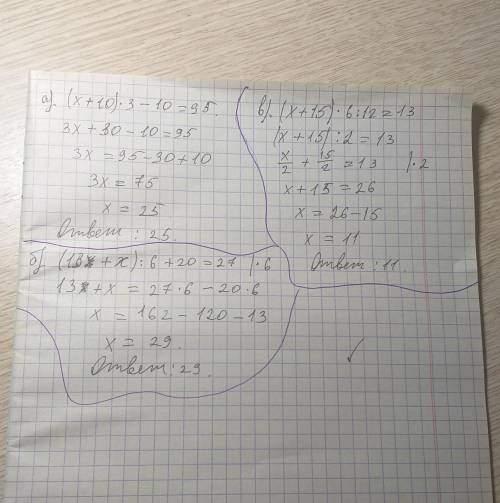 а). (x+10)·3-10=95.
3x+30-10=95
3x=95-30+10
3x=75
x=25
Ответ: 25.
б) (13+x):6+20=27 |·6
13+x=27·6-20·6
x=162-120-13
x=29.
Ответ: 29.
в). (x+15)·6:12=13
(x+15):2=13
x/2+15/2=13 |·2
x+15=26
x=26-15
x=11
Ответ: 11